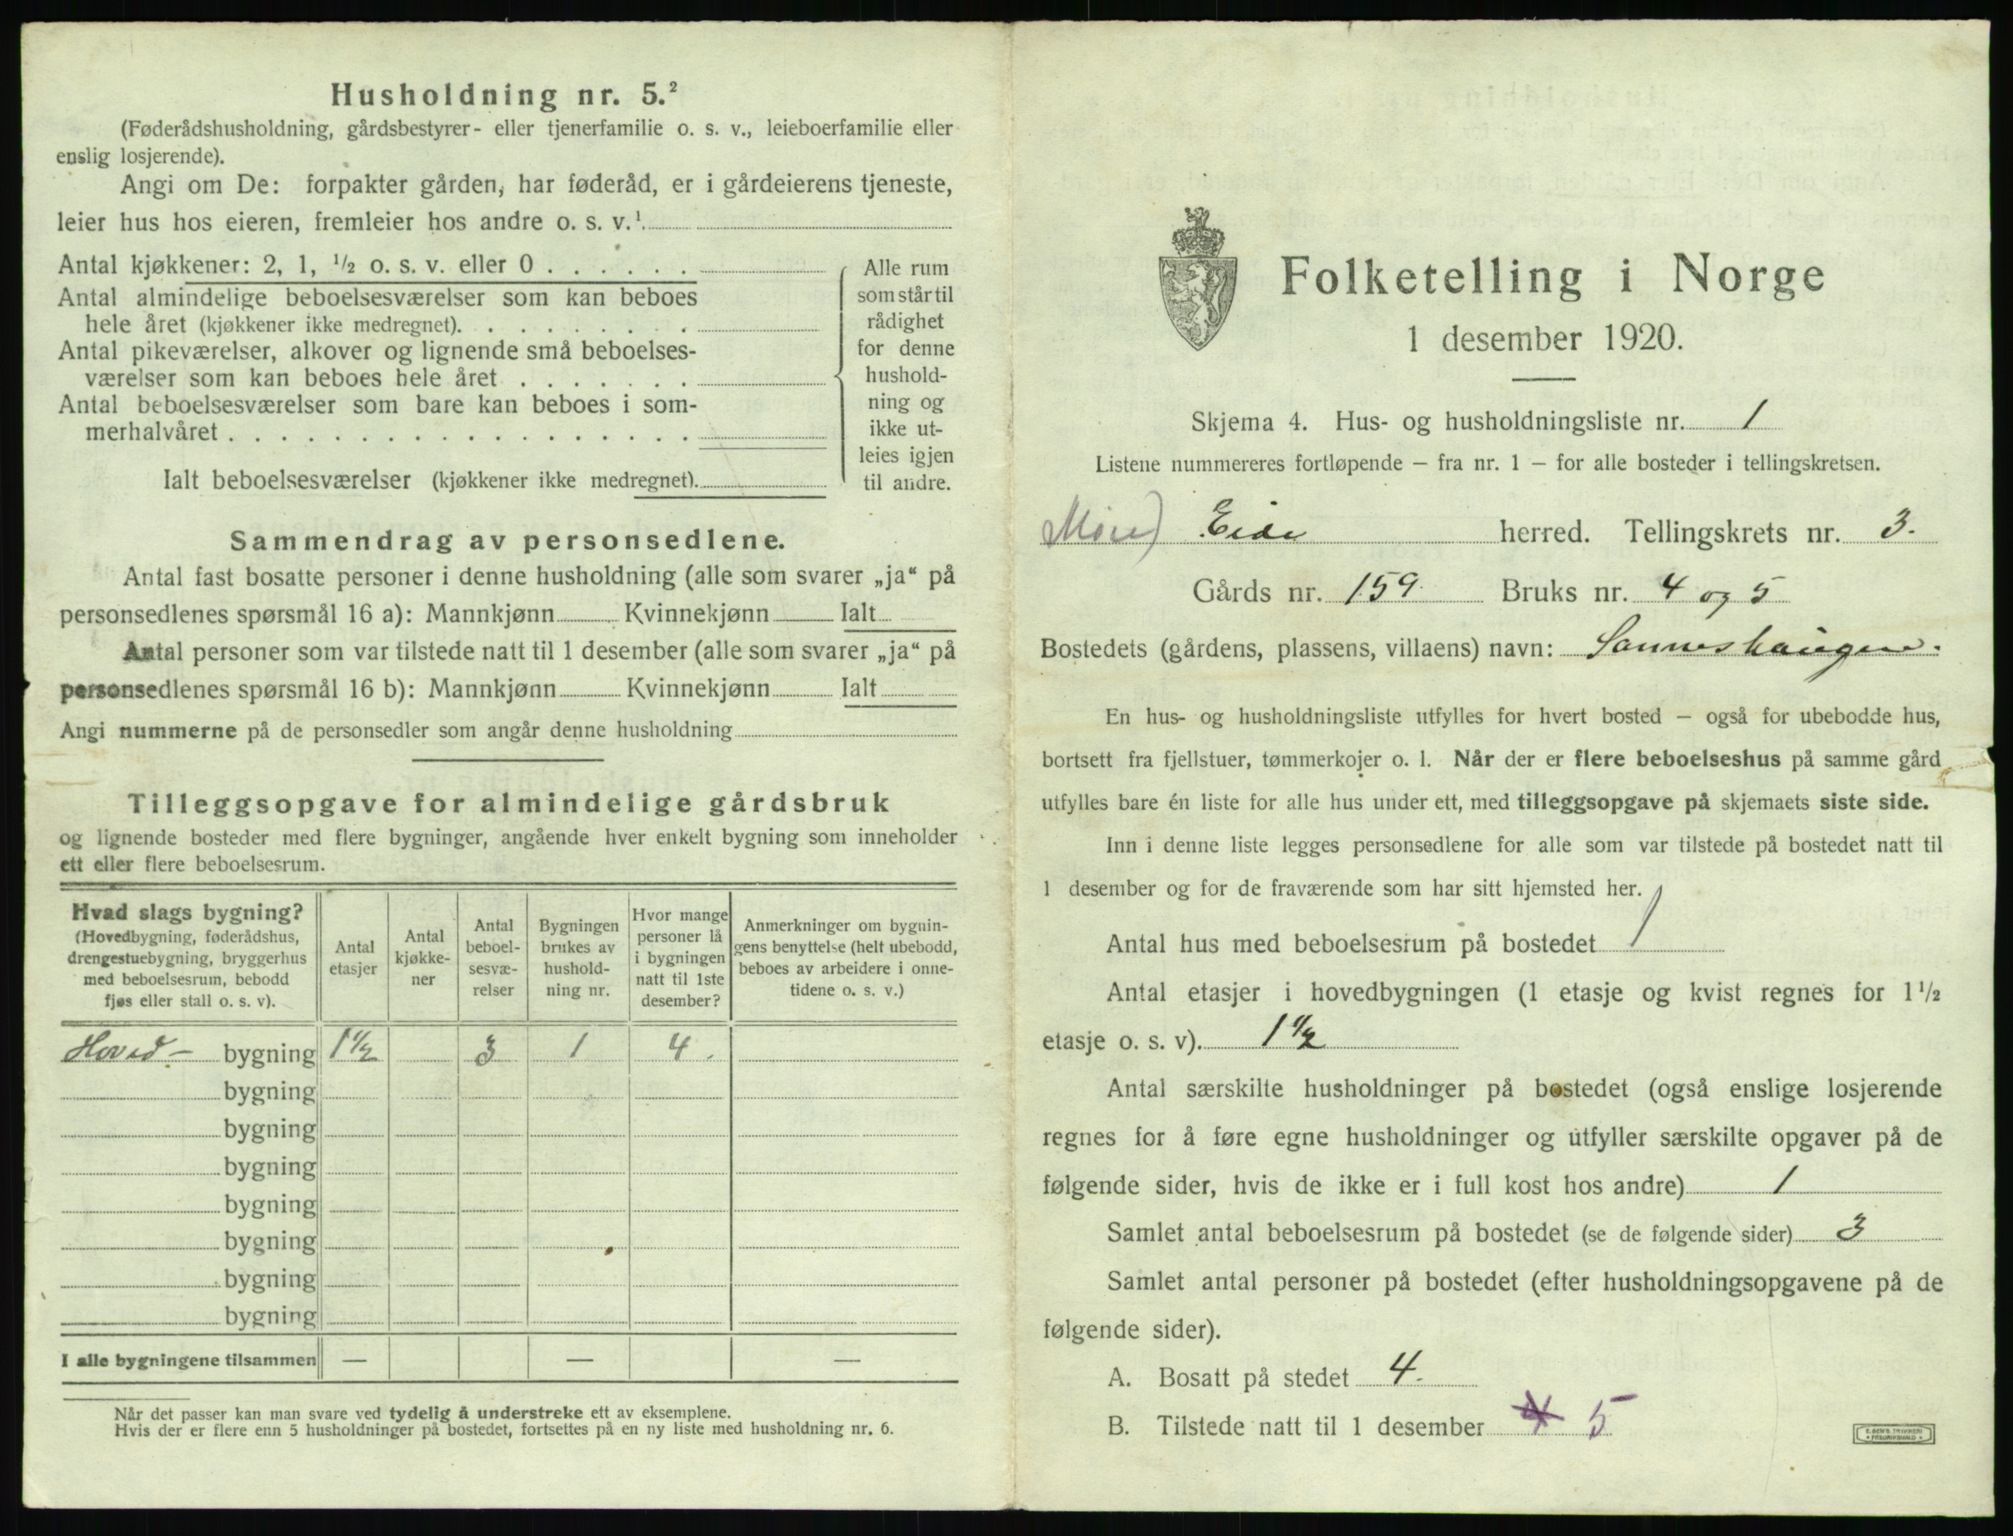 Husholdning nr. 5.²
(Føderådshusholdning, gårdsbestyrer- eller tjenerfamilie o. s. v., leieboerfamilie eller
enslig losjerende).
Angi om De: forpakter gården, har føderåd, er i gårdeierens tjeneste,
leier hus hos eieren, fremleier hos andre o. s. v.¹
Antal kjøkkener: 2, 1, ½ o. s. v. eller 0 . . . . . .
Antal almindelige beboelsesværelser som kan beboes
hele året (kjøkkener ikke medregnet). . . . . . . . .
Antal pikeværelser, alkover og lignende små beboelses-
værelser som kan beboes hele året . . . . . . .
Antal beboelsesværelser som bare kan beboes i som-
merhalvåret . . . . . . . . . . . . . . . . . .
Ialt beboelsesværelser (kjøkkener ikke medregnet).
Alle rum
som står til
rådighet
for denne
hushold-
ning og
ikke ut-
leies igjen
til andre.
Sammendrag av personsedlene.
Antal fast bosatte personer i denne husholdning (alle som svarer „ja“ på
personsedlenes spørsmål 16 a): Mannkjønn Kvinnekjønn Ialt
Antal personer som var tilstede natt til 1 desember (alle som svarer „ja“ på
personsedlenes spørsmål 16 b): Mannkjønn Kvinnekjønn Ialt
Angi nummerne på de personsedler som angår denne husholdning
Tilleggsopgave for almindelige gårdsbruk
og lignende bosteder med flere bygninger, angående hver enkelt bygning som inneholder
ett eller flere beboelsesrum.
Hvad slags bygning?
(Hovedbygning, føderådshus,
drengestuebygning, bryggerhus
med beboelsesrum, bebodd
fjøs eller stall o. s. v).
Antal
etasjer
Antal
kjøkke-
ner
Antal
beboel-
sesvæ-
relser
Bygningen
brukes av
hushold-
ning nr.
Hvor mange
personer lå
i bygningen
natt til 1ste
desember?
Anmerkninger om bygnin-
gens benyttelse (helt ubebodd,
beboes av arbeidere i onne-
tidene o. s. v.)
Hoved- bygning 1½ 3 1 4.
bygning
bygning
bygning
bygning
bygning
bygning
bygning
I alle bygningene tilsammen — — —
Når det passer kan man svare ved tydelig å understreke ett av eksemplene.
Hvis der er flere enn 5 husholdninger på bostedet, fortsettes på en ny liste med husholdning nr. 6.
Folketelling i Norge
1 desember 1920.
Skjema 4. Hus- og husholdningsliste nr. 1
Listene nummereres fortløpende — fra nr. 1 — for alle bosteder i tellingskretsen.
Møre) Eide herred. Tellingskrets nr. 3.
Gårds nr. 159. Bruks nr. 4 og 5
Bostedets (gårdens, plassens, villaens) navn: Sanneshaugen.
En hus- og husholdningsliste utfylles for hvert bosted — også for ubebodde hus,
bortsett fra fjellstuer, tømmerkojer o. l. Når der er flere beboelseshus på samme gård
utfylles bare én liste for alle hus under ett, med tilleggsopgave på skjemaets siste side.
Inn i denne liste legges personsedlene for alle som var tilstede på bostedet natt til
1 desember og for de fraværende som har sitt hjemsted her.
Antal hus med beboelsesrum på bostedet 1
Antal etasjer i hovedbygningen (1 etasje og kvist regnes for 1½
etasje o. s. v). 1½
Antal særskilte husholdninger på bostedet (også enslige losjerende
regnes for å føre egne husholdninger og utfyller særskilte opgaver på de
følgende sider, hvis de ikke er i full kost hos andre) 1
Samlet antal beboelsesrum på bostedet (se de følgende sider) 3
Samlet antal personer på bostedet (efter husholdningsopgavene på de
følgende sider).
A. Bosatt på stedet 4.
B. Tilstede natt til 1 desember 4 5